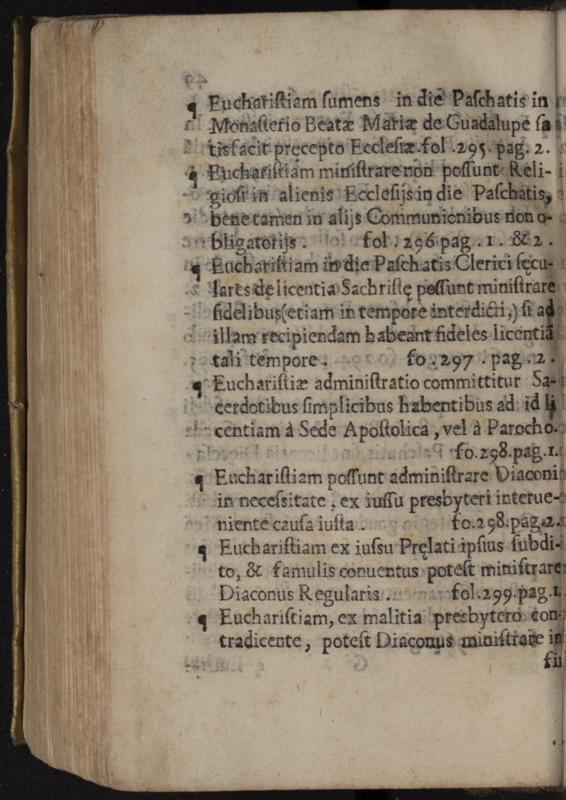 ¶ Euchariſtiam ſumens in die Paſchatis in
Monaſterio Beatæ Mariæ de Guadalupe ſa
tisfacit pręcepto Eccleſiæ.fol.295.pag.2.
¶ Euchariſtiam miniſtrare non poſſunt Reli-
gioſi in alienis Eccleſijs in die Paſchatis,
bene tamen in alijs Communionibus non o-
bligatorijs. fol.296 pag.1.&2.
¶ Euchariſtiam in die Paſchatis Clerici ſęcu-
lares de licentia Sachriſtę poſſunt miniſtrare
fidelibus(etiam in tempore interdicti,) ſi ad
illam recipiendam habeant fideles licentiā
tali tempore. fo.297.pag.2.
¶ Euchariſtiæ adminiſtratio committitur Sa-
cerdotibus ſimplicibus habentibus ad id li
centiam à Sede Apoſtolica, vel à Parocho.
fo.298.pag.1.
¶ Euchariſtiam poſſunt adminiſtrare Diaconi
in neceſsitate, ex iuſſu presbyteri interue-
niente cauſa iuſta. fo.298.pag.2.
¶ Euchariſtiam ex iuſsu Pręlati ipſius ſubdi-
to, & famulis conuentus poteſt miniſtrare
Diaconus Regularis. fol.299.pag.1.
¶ Euchariſtiam, ex malitia presbytero con-
tradicente, poteſt Diaconus miniſtrare in
fii